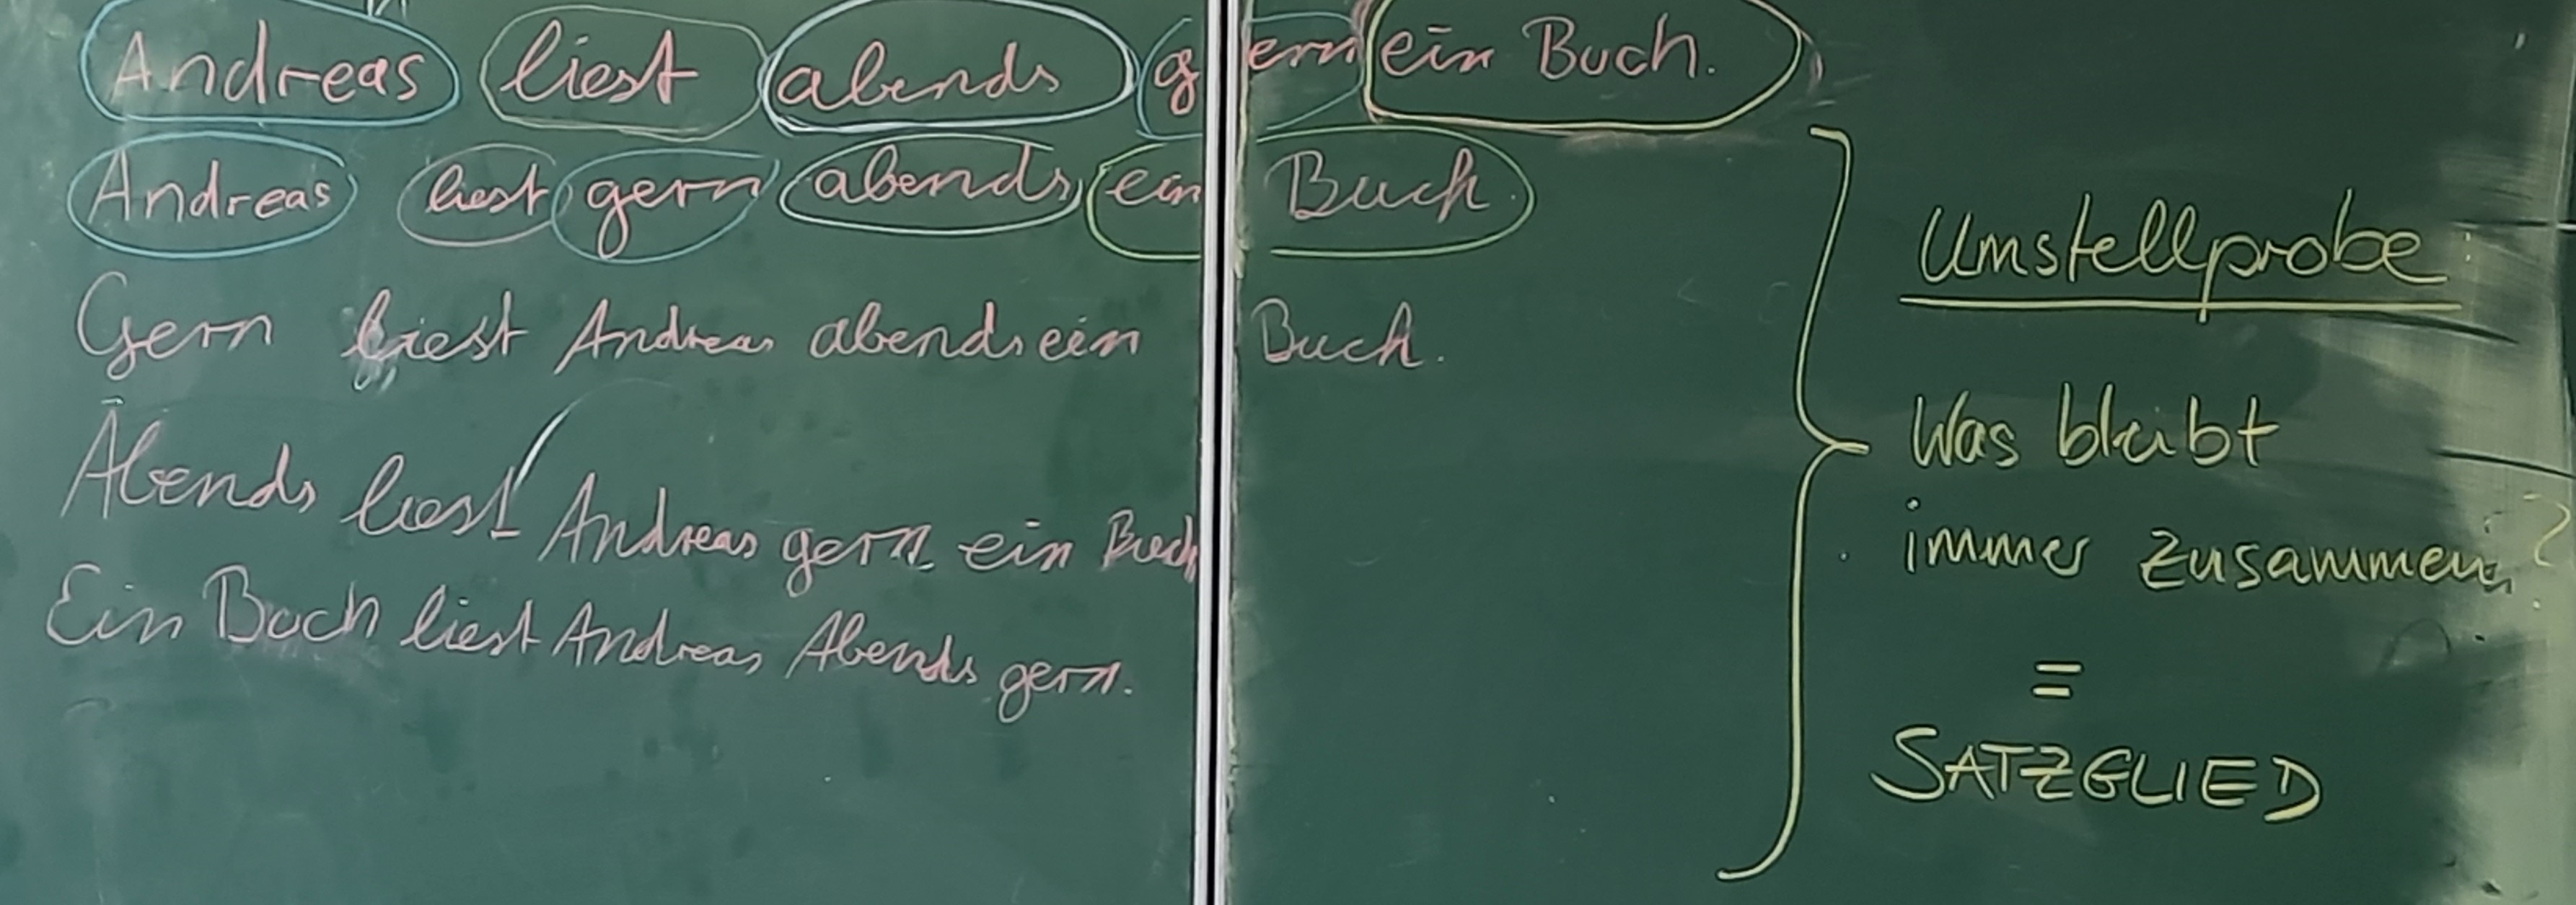 Andreas liest abends gern ein Buch.
Andreas liest gern abends ein Buch.
Gern liest Andreas abends ein Buch.
Abends liest Andreas gern ein Buch
Ein Buch liest Andreas Abends gern.
Umstellprobe:
Was bleibt
immer zusammen?
=
SATZGLIED